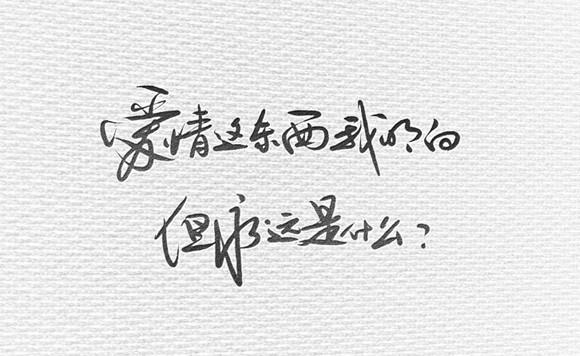 爱情这东西我明白
但永远是什么？